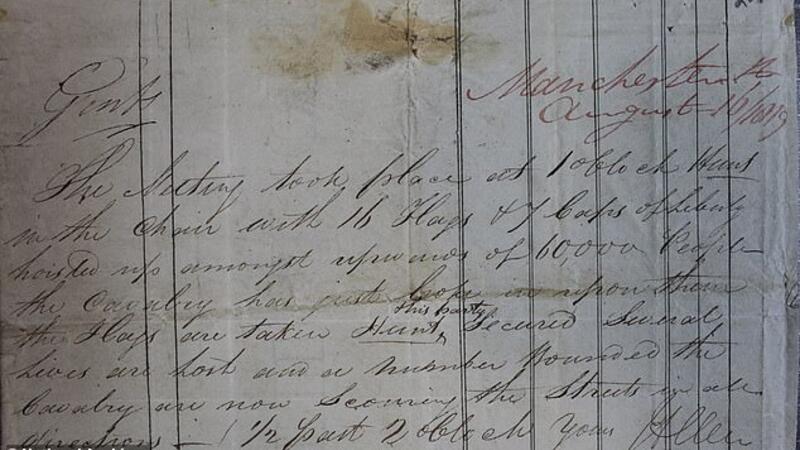 Gents
Manchester
August 16/1819
The Meeting took place at 1 oblock Hunt
in the Chair with 16 Flags & 7 Caps of Liberty
hoisted up amongst upwards of 60,000 People
the Cavalry has just broke in upon them
the Flags are taken Hunts this party Secured Several
Lives are lost and a number Wounded the
Cavalry are now Scouring the Streets in all
directions - 1/2 past 2 oblock Yours Allen